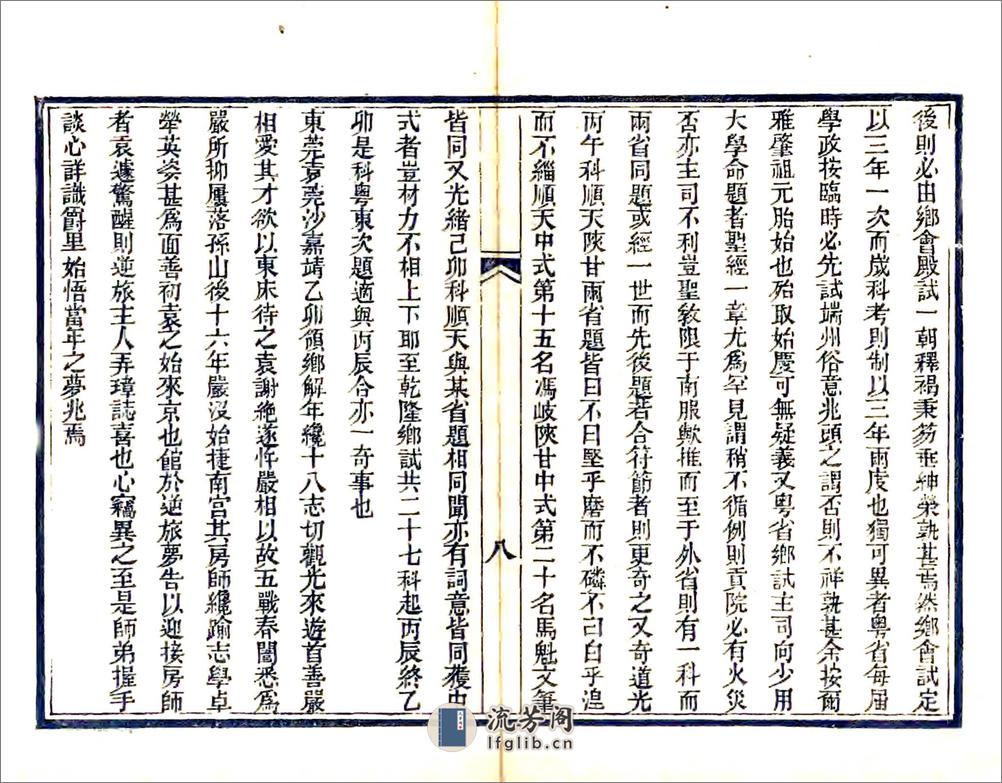 後則必由鄉會殿試一朝釋褐秉笏垂紳榮孰甚焉然鄉會試定
以三年一次而歲科考則制以三年兩度也獨可異者粤省每届
學政按臨時必先試端州俗意兆頭之謂否則不祥孰甚余按爾
雅肇祖元胎始也殆取始慶可無疑義又粤省鄉試主司向少用
大學命題者聖經一章尤爲罕見謂稍不循例則貢院必有火災
否亦主司不利豈聖教限于南服歟推而至于外省則有一科而
兩省同題或經一世而先後題若合符節者則更奇之又奇道光
丙午科順天陝甘兩省題皆曰不曰堅乎磨而不磷不曰白乎湼
而不緇順天中式第十五名馮岐陝甘中式第二十名馬魁文筆
八
皆同又光緒己卯科順天與某省題相同聞亦有詞意皆同獲中
式者豈材力不相上下耶至乾隆鄉試共二十七科起丙辰終乙
卯是科粤東次題適與丙辰合亦一奇事也
東莞袁莞沙嘉靖乙卯領鄉解年纔十八志切觀光來遊首善嚴
相愛其才欲以東床待之袁謝絶遂忤嚴相以故五戰春闈悉爲
嚴所抑屢落孫山後十六年嚴沒始捷南宫其房師纔踰志學卓
犖英姿甚爲面善初袁之始來京也館於逆旅夢告以迎接房師
者袁遽驚醒則逆旅主人弄璋誌喜也心竊異之至是師弟握手
談心詳識爵里始悟當年之夢兆焉
流芳阁
lfglib.cn